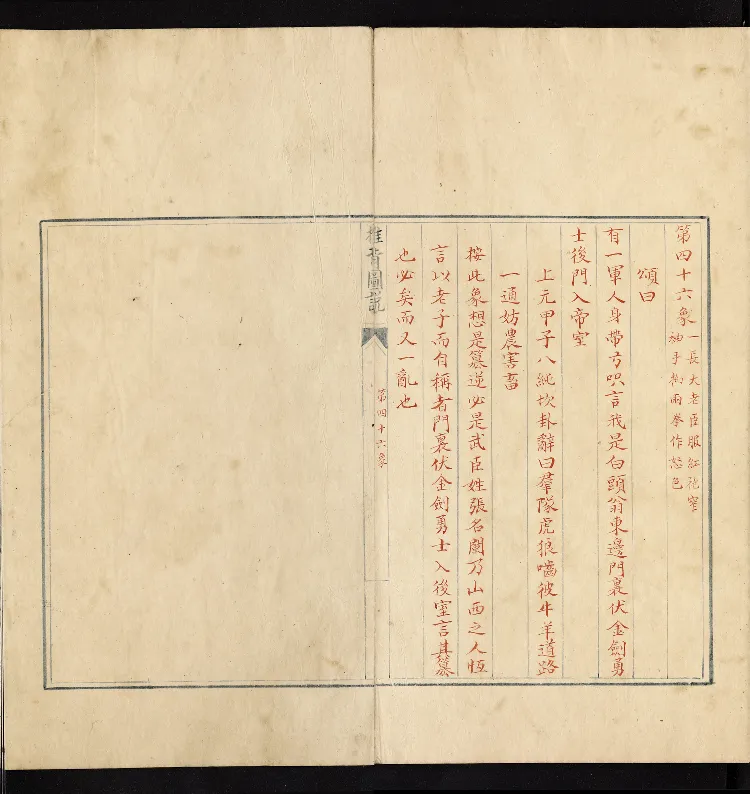 第四十六象
一長大老臣服紅袍窄
袖手揣兩拳作怒色
頌曰
有一軍人身帶弓哭言我是白頭翁東邊門裏伏金劍勇
士後門入帝室
上元甲子八純坎卦辭曰羣隊虎狼嚙彼牛羊道路
一通妨農害畜
按此象想是篡逆必是武臣姓張名闖乃山西之人恆
言以老子而自稱者門裏伏金劍勇士入後室言其篡
也必矣而又一亂也
推背圖說
第四十六象